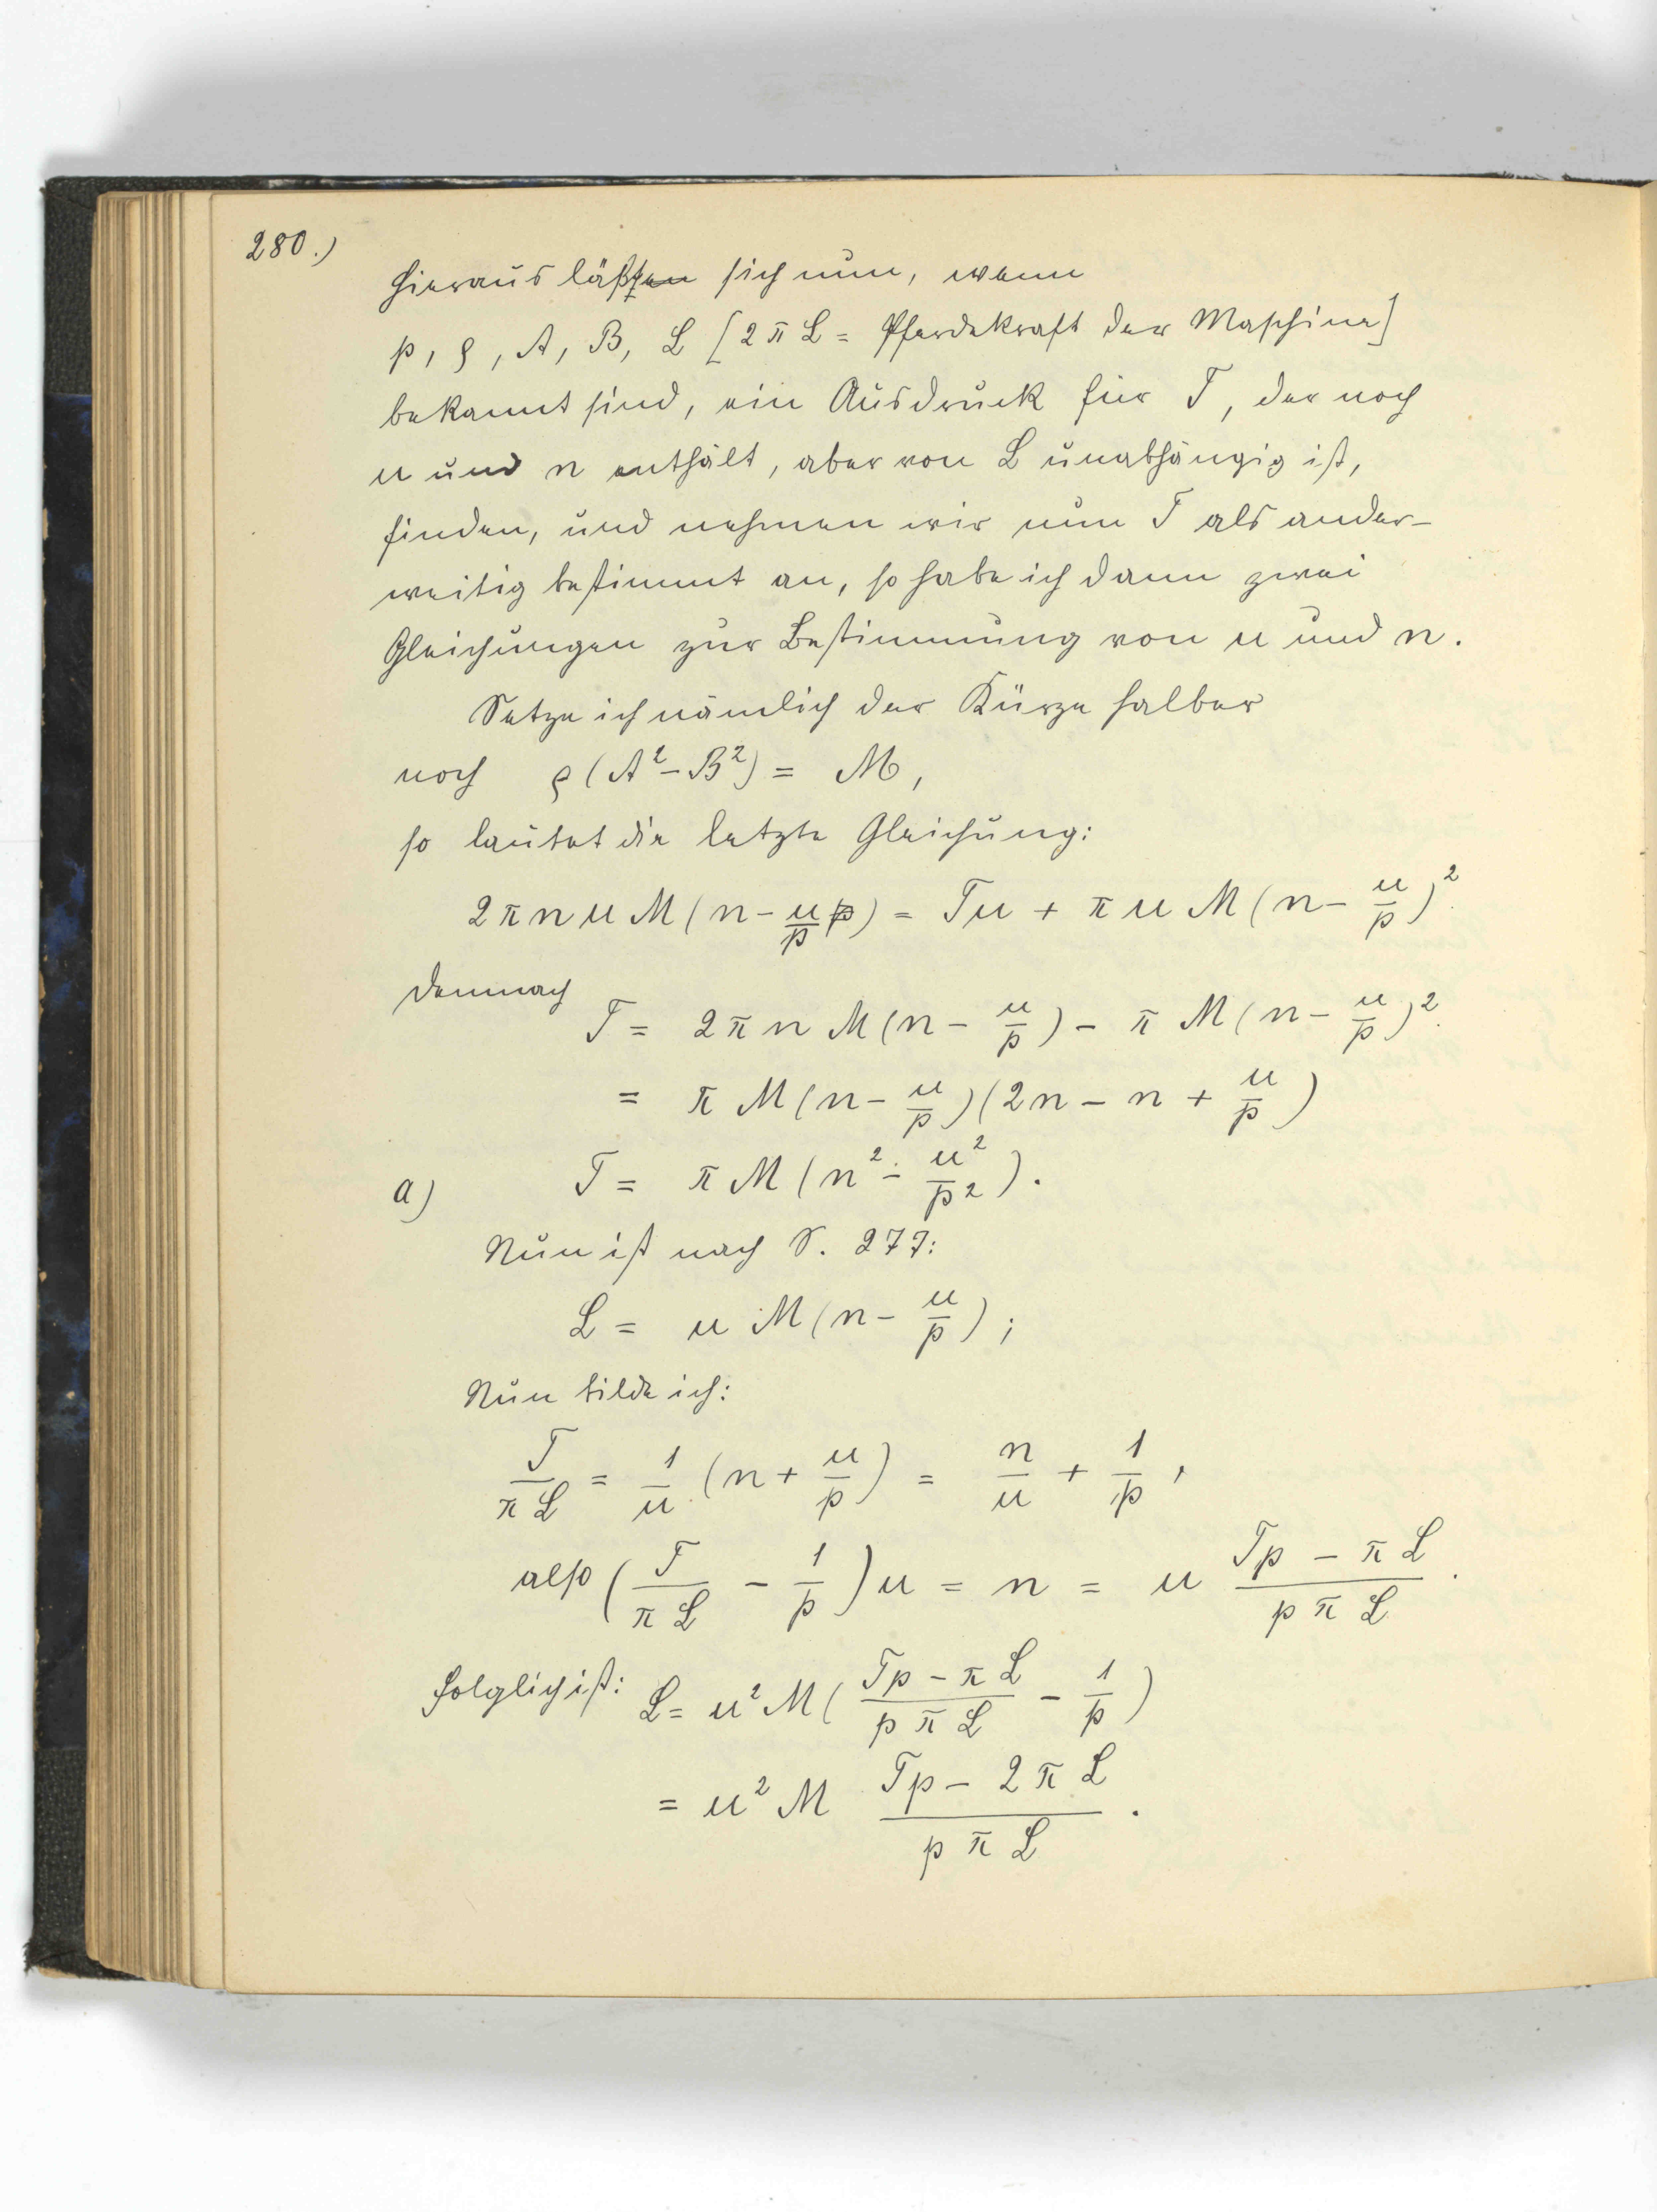 280.)
Hieraus läßt sich nun, wenn
p, ϱ, A, B, L [2πL = Pferdekraft der Maschine]
bekannt sind, ein Ausdruck für T, der noch
u und n enthält, aber von L unabhängig ist,
finden, und nehmen wir nun T als ander-
weitig bestimmt an, so habe ich dann zwei
Gleichungen zur Bestimmung von u und n.
Setze ich nämlich der Kürze halber
noch ϱ(A² - B²) = M,
so lautet die letzte Gleichung:
2πnuM(n - u/p) = Tu + πuM(n - u/p)².
demnach
T = 2πnM(n - u/p) - πM(n - u/p)².
= πM(n - u/p)(2n - n + u/p)
a) T = πM(n² - u²/p²).
Nun ist nach S. 277:
L = uM(n - u/p);
Nun bilde ich:
T/πL = 1/u (n + u/p) = n/u + 1/p,
also (T/πL - 1/p)u = n = u (Tp - πL)/(pπL).
folglich ist: L = u²M((Tp - πL)/(pπL) - 1/p)
= u²M (Tp - 2πL)/(pπL).